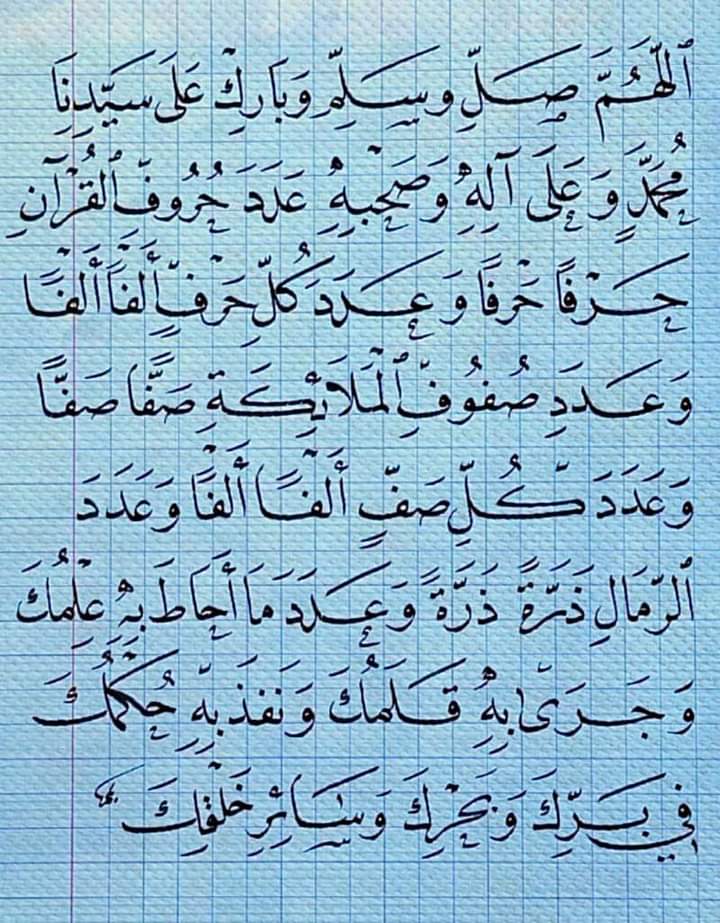 ٱللَّهُمَّ صَلِّ وسَلِّمْ وَبَارِكْ عَلَى سَيِّدِنَا
مُحَمَّدٍ وَعَلَى آلِهِ وَصَحْبِهِ عَدَدَ حُرُوفِ ٱلقُرْآنِ
حَرْفًا حَرْفًا وَعَدَدَ كُلِّ حَرْفٍ أَلْفًا أَلْفًا
وَعَدَدِ صُفُوفِ ٱلْمَلَائِكَةِ صَفًّا صَفًّا
وَعَدَدَ كُلِّ صَفٍّ أَلْفًا أَلْفًا وَعَدَدَ
ٱلرِّمَالِ ذَرَّةً ذَرَّةً وَعَدَدَ مَا أَحَاطَ بِهِ عِلْمُكَ
وَجَرَى بِهِ قَلَمُكَ وَنَفَذَ بِهِ حُكْمُكَ
فِي بَرِّكَ وَبَحْرِكَ وَسَائِرِ خَلْقِكَ